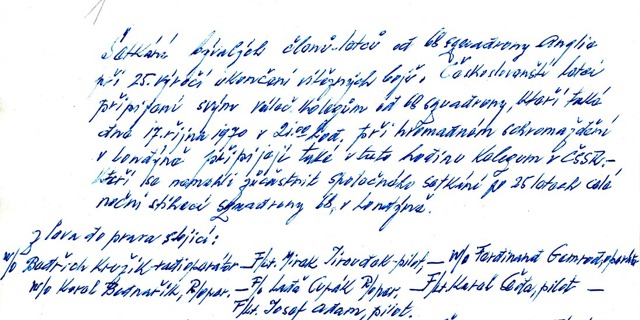 Setkání bývalých členů-letců od 68 squadrony Anglie
při 25. výročí ukončení vítězných bojů. Českoslovenští letci
připíjení svým válec kolegům od 68 squadrony, kteří také
dne 17. října 1970 v 21.00 hod, při hromadném schromáždění
v Londýně připíjejí také v tuto hodinu kolegům v ČSSR,-
kteří se nemohli zúčastnit společného setkání po 25 letech celé
noční stíhací squadrony 68, v Londýně.
Zleva do prava stojící:
w/o Bedřich Kružík-radioparátor - F/Lt. Mirek -pilot, - w/o Ferdinand
w/o Karel Bednařík, R/oper. - F/o Laďa Cupák R/oper. - F/Lt Karel pilot -
F/Lt. Josef Adam, pilot.